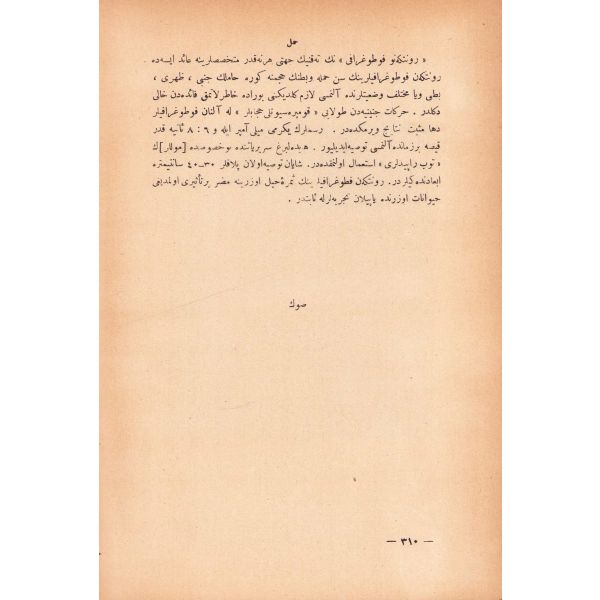 حمل
« رونتكنو فوطوغرافى » نك تەقنيك جهتى هرنەقدر متخصصلرينە عائد ايسەدە
رونتكن فوطوغرافيلرينك سن حملە وبطنك حجمنە كورە حاملك جنبى ، ظهرى ،
بطنى ويا مختلف وضعيتلرندە آلنمسى لازم كلديكنى بورادە خاطرلاتمق فائدەدن خالى
دكلدر . حركات جنينيەدن طولايى « قومپرەسيونلى حجابلر » لە آلنان فوطوغرافيلر
دها مثبت نتايج ويرمكدەدر . رسملرك يكرمى ميلى آمپر ايلە و ٦ : ٨ ثانيە قدر
قيصە برزماندە آلنمسى توصيە ايديليور . هيدەلبرغ سريرياتندە بوخصوصدە [موللر]ك
« توب راپيدلرى » استعمال اولنمقدەدر . شايان توصيە اولان پلاقلر ٣٠ـ٤٠ سانتيمترە
ابعادندەكيلردر . رونتكن فوطوغرافيلرينك ثمرۀ حبل اوزرينە مضر برتأثيرى اولمديغى
حيوانات اوزرندە ياپيلان تجربەلرلە ثابتدر .
صوك
— ٣١٠ —